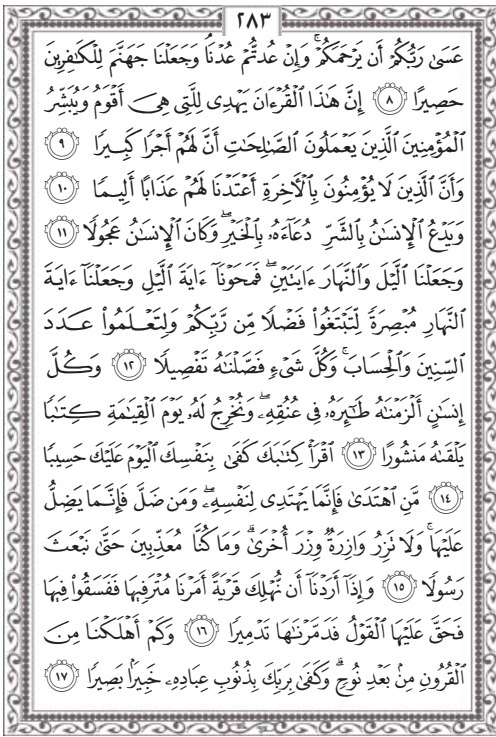 ٢٨٣
عَسَىٰ رَبُّكُمْ أَن يَرْحَمَكُمْ ۚ وَإِنْ عُدتُّمْ عُدْنَا ۘ وَجَعَلْنَا جَهَنَّمَ لِلْكَـٰفِرِينَ
حَصِيرًا ٨ إِنَّ هَـٰذَا ٱلْقُرْءَانَ يَهْدِى لِلَّتِى هِىَ أَقْوَمُ وَيُبَشِّرُ
ٱلْمُؤْمِنِينَ ٱلَّذِينَ يَعْمَلُونَ ٱلصَّـٰلِحَـٰتِ أَنَّ لَهُمْ أَجْرًا كَبِيرًا ٩
وَأَنَّ ٱلَّذِينَ لَا يُؤْمِنُونَ بِٱلْـَٔاخِرَةِ أَعْتَدْنَا لَهُمْ عَذَابًا أَلِيمًا ١٠
وَيَدْعُ ٱلْإِنسَـٰنُ بِٱلشَّرِّ دُعَآءَهُۥ بِٱلْخَيْرِ ۖ وَكَانَ ٱلْإِنسَـٰنُ عَجُولًا ١١
وَجَعَلْنَا ٱلَّيْلَ وَٱلنَّهَارَ ءَايَتَيْنِ ۖ فَمَحَوْنَآ ءَايَةَ ٱلَّيْلِ وَجَعَلْنَآ ءَايَةَ
ٱلنَّهَارِ مُبْصِرَةً لِّتَبْتَغُوا۟ فَضْلًا مِّن رَّبِّكُمْ وَلِتَعْلَمُوا۟ عَدَدَ
ٱلسِّنِينَ وَٱلْحِسَابَ ۚ وَكُلَّ شَىْءٍ فَصَّلْنَـٰهُ تَفْصِيلًا ١٢ وَكُلَّ
إِنسَـٰنٍ أَلْزَمْنَـٰهُ طَـٰٓئِرَهُۥ فِى عُنُقِهِۦ ۖ وَنُخْرِجُ لَهُۥ يَوْمَ ٱلْقِيَـٰمَةِ كِتَـٰبًا
يَلْقَىٰهُ مَنشُورًا ١٣ ٱقْرَأْ كِتَـٰبَكَ كَفَىٰ بِنَفْسِكَ ٱلْيَوْمَ عَلَيْكَ حَسِيبًا
١٤ مَّنِ ٱهْتَدَىٰ فَإِنَّمَا يَهْتَدِى لِنَفْسِهِۦ ۖ وَمَن ضَلَّ فَإِنَّمَا يَضِلُّ
عَلَيْهَا ۚ وَلَا تَزِرُ وَازِرَةٌ وِزْرَ أُخْرَىٰ ۗ وَمَا كُنَّا مُعَذِّبِينَ حَتَّىٰ نَبْعَثَ
رَسُولًا ١٥ وَإِذَآ أَرَدْنَآ أَن نُّهْلِكَ قَرْيَةً أَمَرْنَا مُتْرَفِيهَا فَفَسَقُوا۟ فِيهَا
فَحَقَّ عَلَيْهَا ٱلْقَوْلُ فَدَمَّرْنَـٰهَا تَدْمِيرًا ١٦ وَكَمْ أَهْلَكْنَا مِنَ
ٱلْقُرُونِ مِنۢ بَعْدِ نُوحٍ ۗ وَكَفَىٰ بِرَبِّكَ بِذُنُوبِ عِبَادِهِۦ خَبِيرًۢا بَصِيرًا ١٧